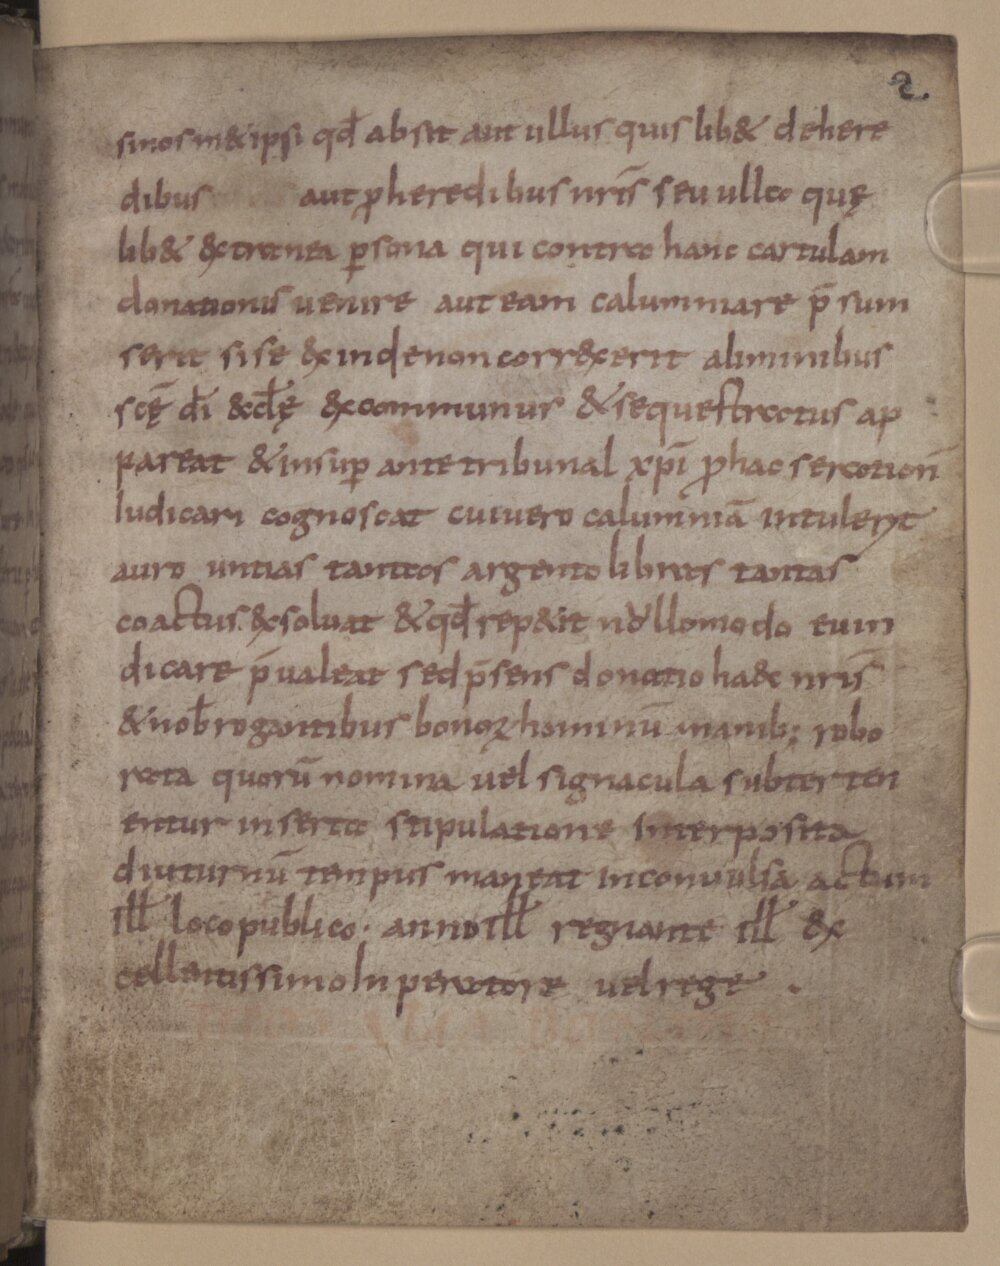 2.
sinos m& ipsi qđ absit aut ullus quis lib& dehere
dibus aut ꝓheredibus nr̄is seu ulla quę
lib& &xtranea ꝑsona qui contra hanc cartulam
donationis uenire aut eam calumniare p̄sum
serit sise &xinde non corr&xerit aliminibus
scę̄ dī &cl̄ę &xcommunus & sequestratus ap
pareat & insuꝑ ante tribunal xp̄i ꝓhac seratioñ
Iudicari cognoscat cui uero calumniā intuleryt
auro untias tantas argento libras tantas
coactus &xsoluat & qđ rep&it nullomodo euin
dicare p̄ualeat sed p̄sens donatio ha&c nr̄is
& nob̄ rogantibus bonoꝝ hominū manib; robo
rata quorū nomina uel signacula subter ten
entur inserta stipulatione Interposita
diuturnū tempus maneat inconuulsa actum
ill̄ loco publico. anno ill̄ regnante ill̄ &x
cellentissimo Inperatore uel rege .